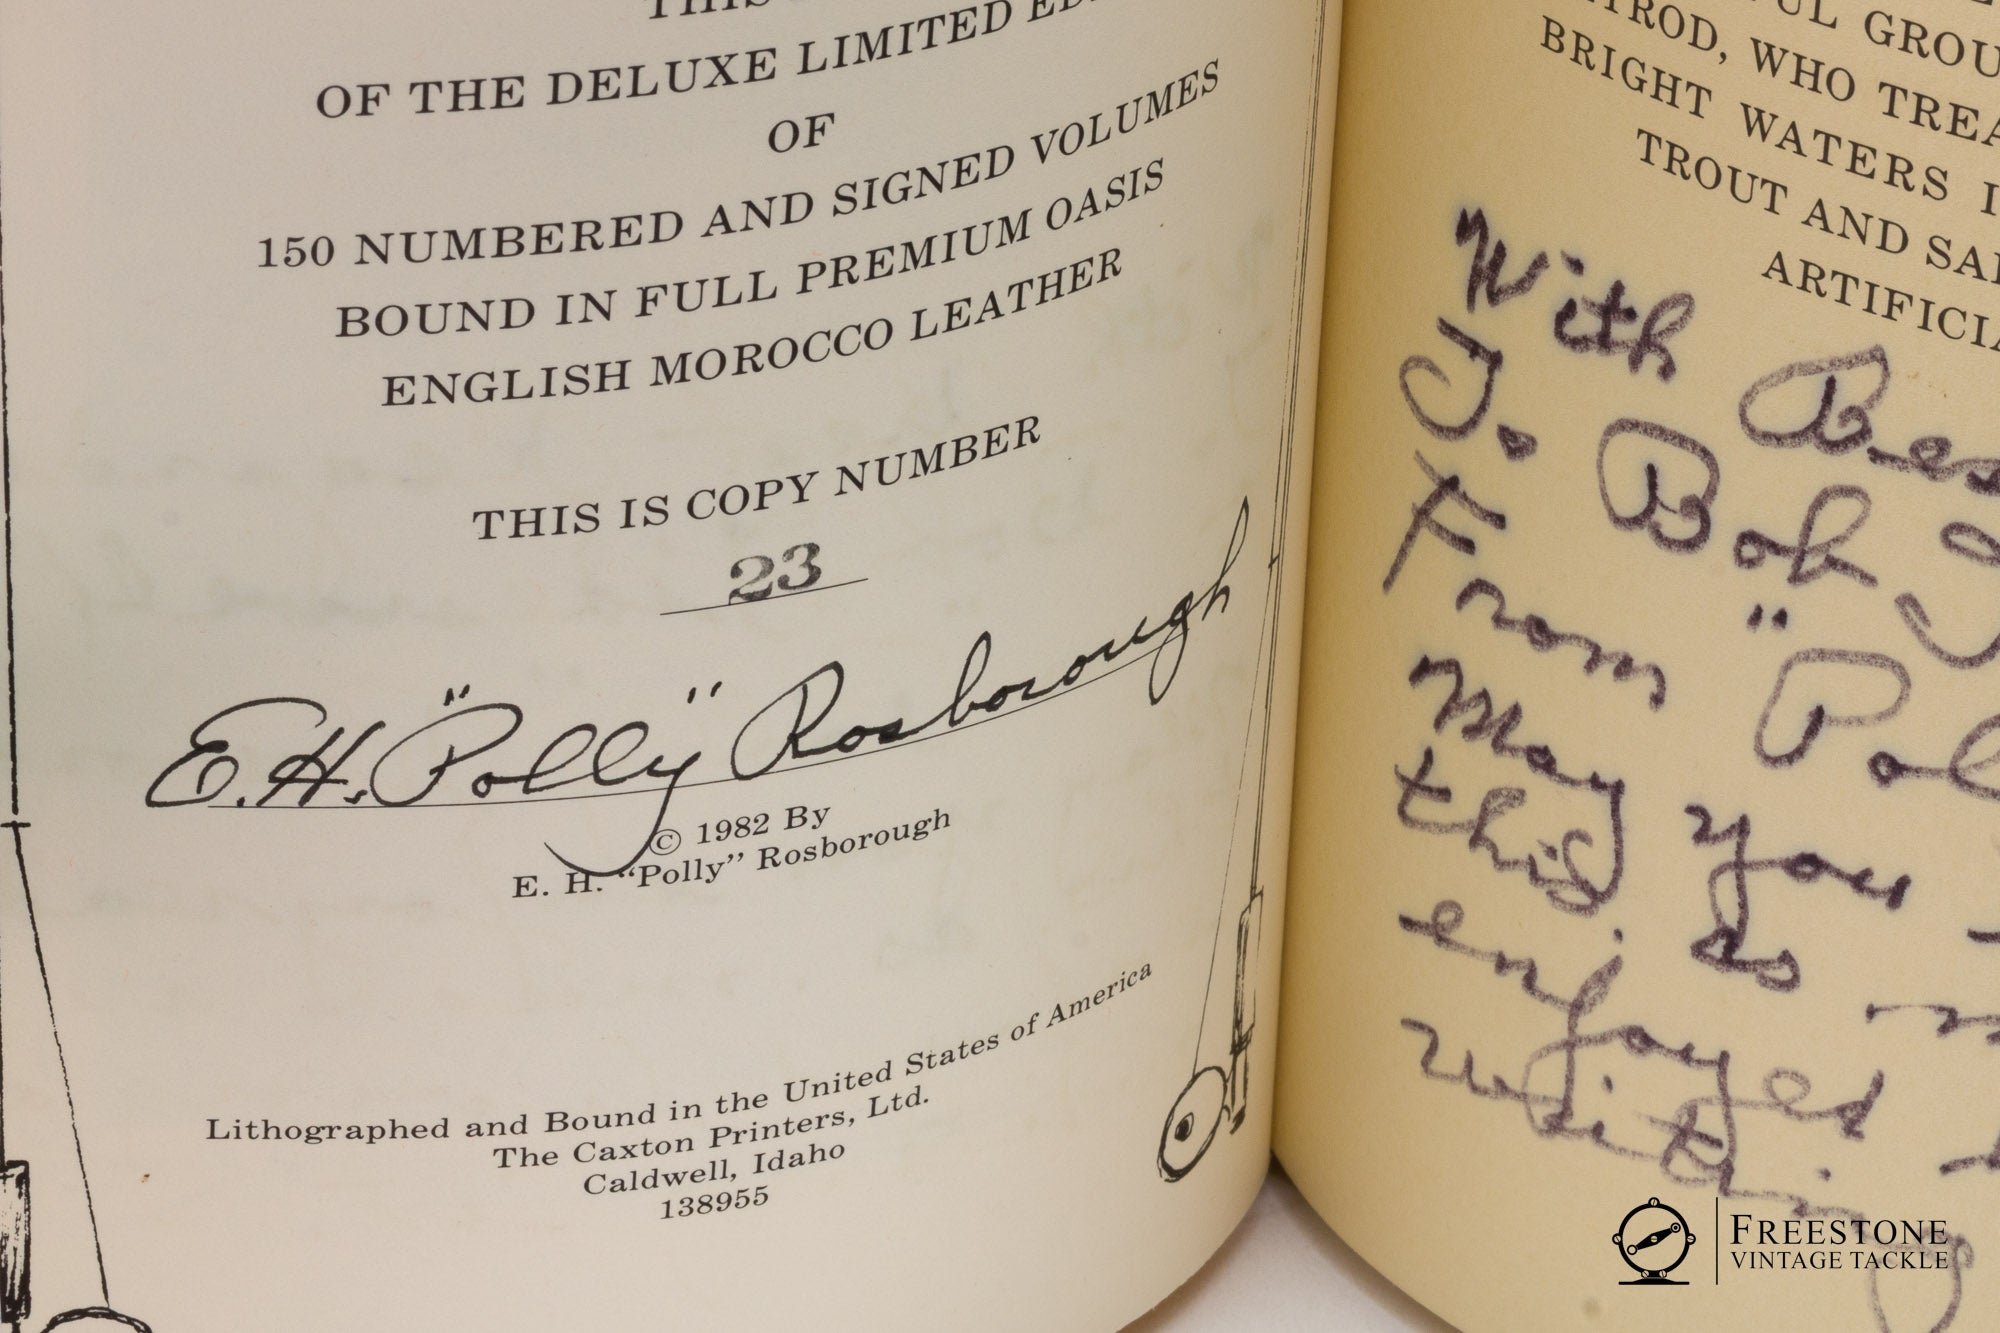 THIS
OF THE DELUXE LIMITED
OF
150 NUMBERED AND SIGNED VOLUMES
BOUND IN FULL PREMIUM OASIS
ENGLISH MOROCCO LEATHER
THIS IS COPY NUMBER
23
E. H. "Polly" Rosborough
© 1982 By
E. H. "Polly" Rosborough
Lithographed and Bound in the United States of America
The Caxton Printers, Ltd.
Caldwell, Idaho
138955
GROU
ROD, WHO TREA
BRIGHT WATERS
TROUT AND SAL
ARTIFICIA
With Bes
To Bob
From "Pol
May you
this as
enjoyed
writing
FREESTONE
VINTAGE TACKLE